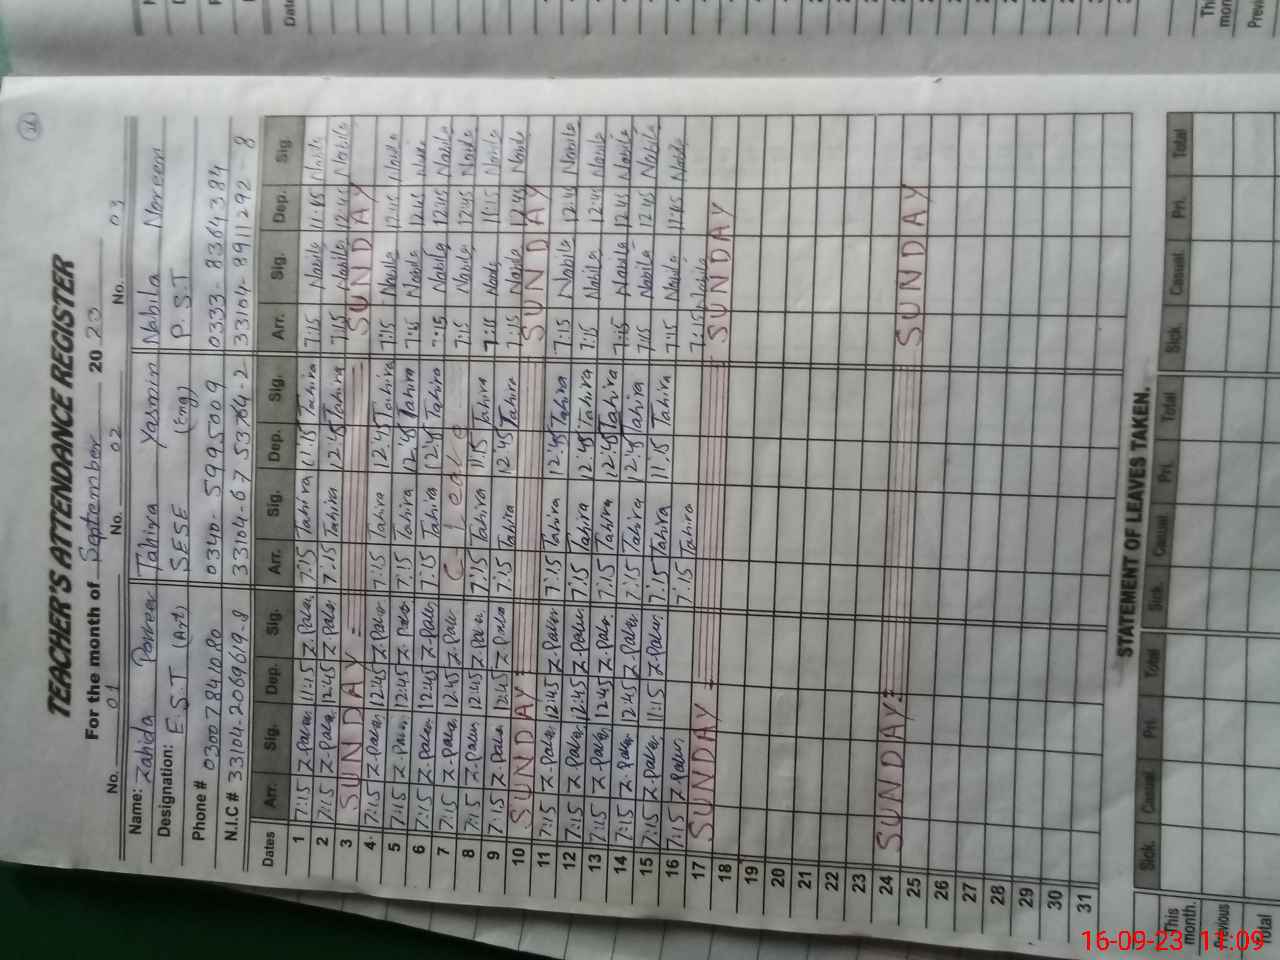 TEACHER'S ATTENDANCE REGISTER
For the month of September 20 23
No. 01 No. 02 No. 03
Name: Zahida Parveen Tahira Yasmin Nabila Noreen
Designation: E.S.T (Art) SESE (Eng) P.S.T
Phone # 03007841080 0340-5995009 0333-8364384
N.I.C # 33104-2069619-8 33104-6753764-2 33104-8911292-8
Dates Arr. Sig. Dep. Sig. Arr. Sig. Dep. Sig. Arr. Sig. Dep. Sig.
1 7:15 Z.Parven 11:15 Z.Parven 7:15 Tahira 11:15 Tahira 7:15 Nabila 11:15 Nabila
2 7:15 Z.Parven 12:45 Z.Parven 7:15 Tahira 12:45 Tahira 7:15 Nabila 12:45 Nabila
3 SUNDAY SUNDAY
4 7:15 Z.Parven 12:45 Z.Parven 7:15 Tahira 12:45 Tahira 7:15 Nabila 12:45 Nabila
5 7:15 Z.Parven 12:45 Z.Parven 7:15 Tahira 12:45 Tahira 7:15 Nabila 12:45 Nabila
6 7:15 Z.Parven 12:45 Z.Parven 7:15 Tahira 12:45 Tahira 7:15 Nabila 12:45 Nabila
7 7:15 Z.Parven 12:45 Z.Parven C Leave 7:15 Nabila 12:45 Nabila
8 7:15 Z.Parven 12:45 Z.Parven 7:15 Tahira 11:15 Tahira 7:15 Nabila 11:15 Nabila
9 7:15 Z.Parven 12:45 Z.Parven 7:15 Tahira 12:45 Tahira 7:15 Nabila 12:45 Nabila
10 SUNDAY SUNDAY
11 7:15 Z.Parven 12:45 Z.Parven 7:15 Tahira 12:45 Tahira 7:15 Nabila 12:45 Nabila
12 7:15 Z.Parven 12:45 Z.Parven 7:15 Tahira 12:45 Tahira 7:15 Nabila 12:45 Nabila
13 7:15 Z.Parven 12:45 Z.Parven 7:15 Tahira 12:45 Tahira 7:15 Nabila 12:45 Nabila
14 7:15 Z.Parven 12:45 Z.Parven 7:15 Tahira 12:45 Tahira 7:15 Nabila 12:45 Nabila
15 7:15 Z.Parven 11:15 Z.Parven 7:15 Tahira 11:15 Tahira 7:15 Nabila 11:45 Nabila
16 7:15 Z.Parven 7:15 Tahira 7:15 Nabila
17 SUNDAY SUNDAY
18
19
20
21
22
23
24 SUNDAY SUNDAY
25
26
27
28
29
30
31
STATEMENT OF LEAVES TAKEN.
Sick. Casual Pri. Total Sick. Casual Pri. Total Sick. Casual Pri. Total
This month.
Previous
Total
16-09-23 11:09